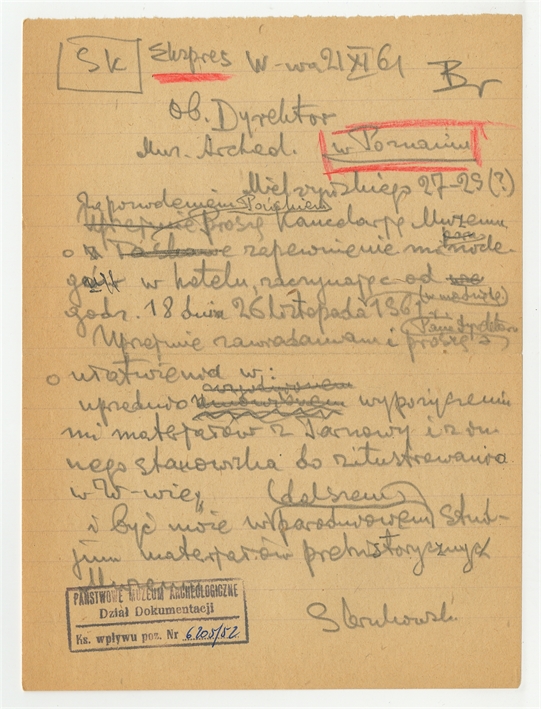 Sk Ekspres W-wa 21 XI 61
Br
Ob. Dyrektor
Muz. Archeol. w Poznaniu
Mielżyńskiego 27-29 (?)
Za pozwoleniem
Uprzejmie proszę Kancelarję Muzeum
o zapewnienie mi nocle-
gów w hotelu, zaczynając od
godz. 18 dnia 26 listopada 1961
Uprzejmie zawiadamiam i proszę
Pana Dyrektora
o ułatwienia w:
uprzednio wypożyczeniu
mi materjałów z Tarnowy i z in-
nego stanowiska do zilustrowania
w W-wie,
(dalszem)
i być może w parodniowem stud-
jum materjałów prehistorycznych
Muzeum
PAŃSTWOWE MUZEUM ARCHEOLOGICZNE
Dział Dokumentacji
Ks. wpływu poz. Nr 6205/52
S Krukowski